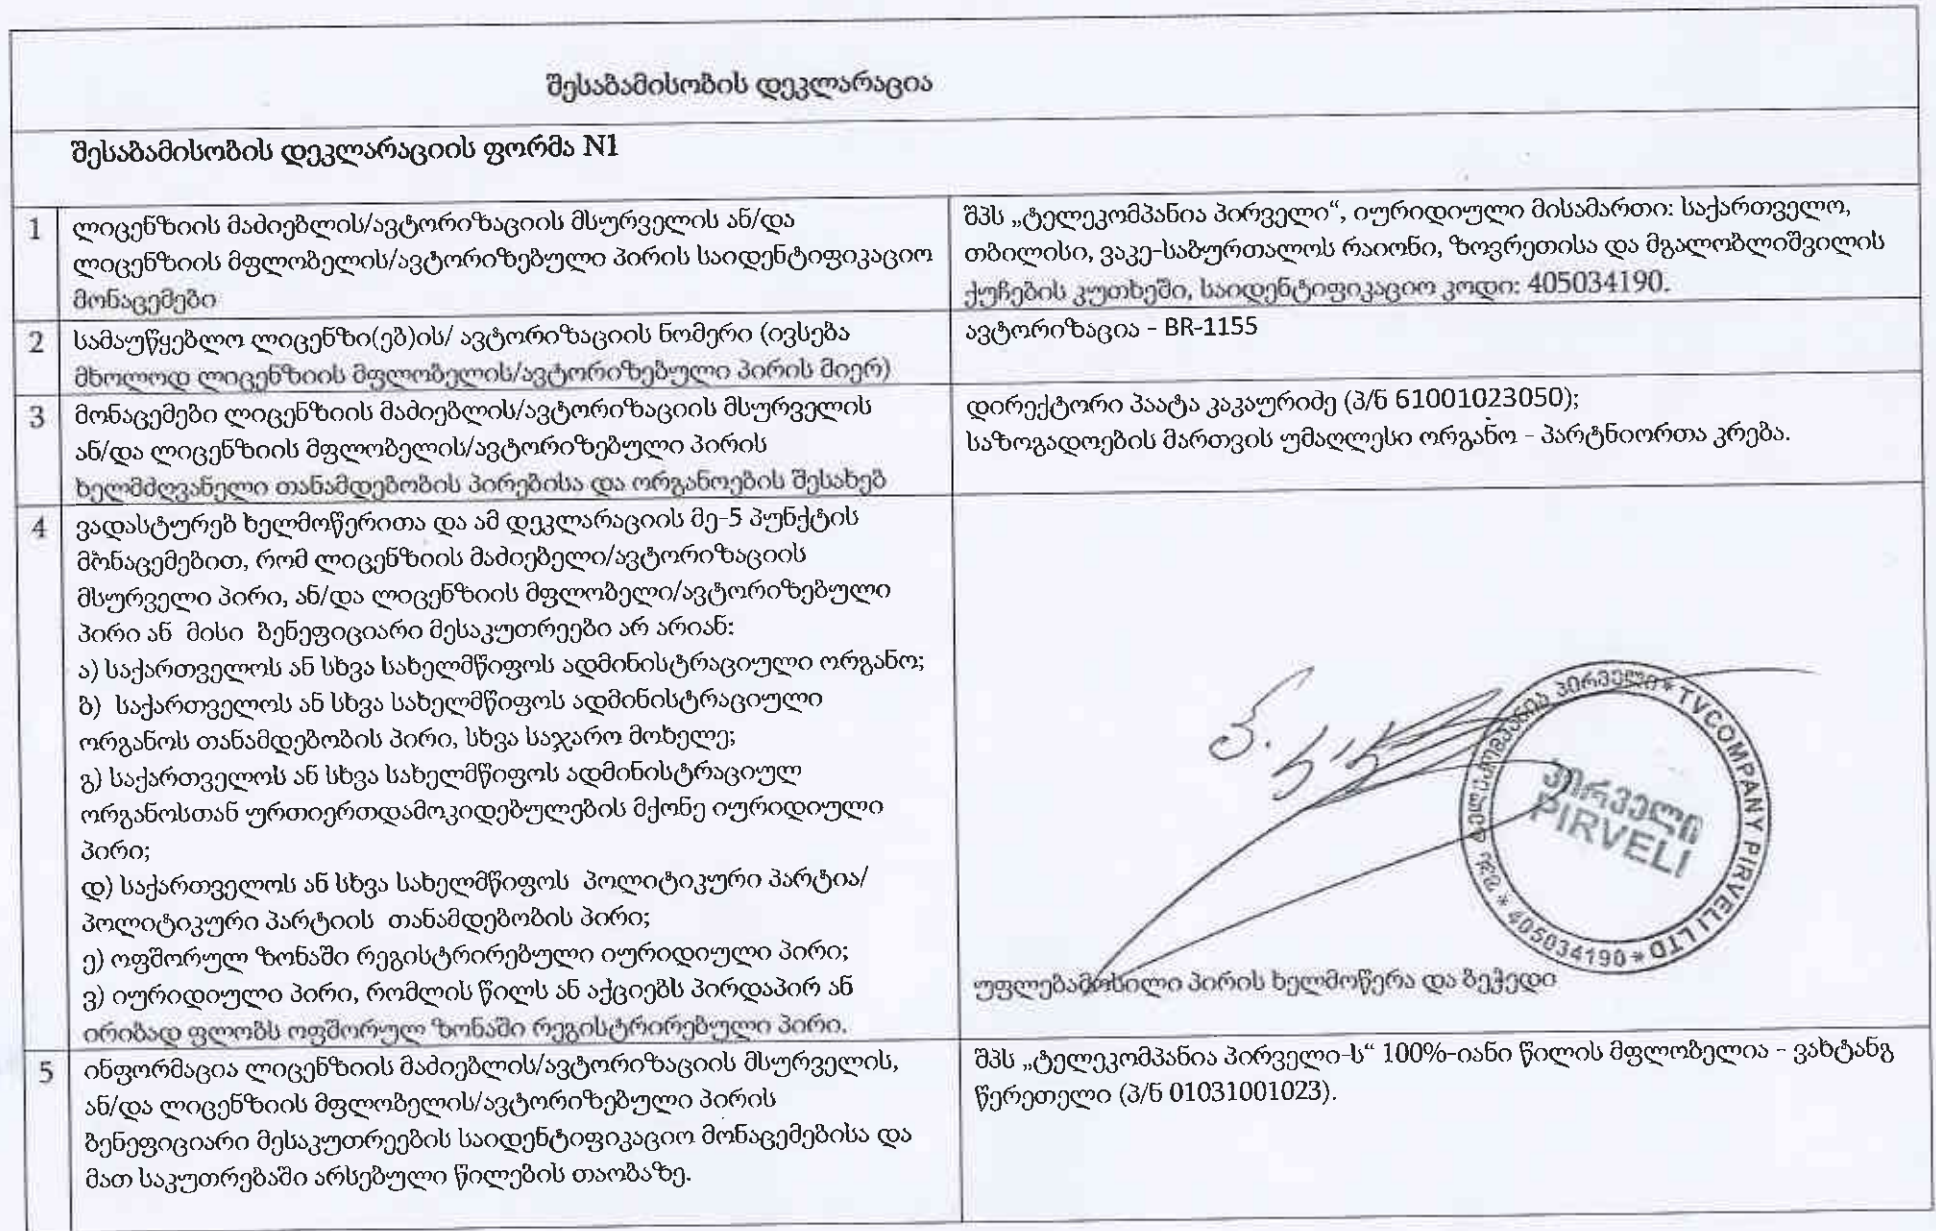 შესაბამისობის დეკლარაცია
შესაბამისობის დეკლარაციის ფორმა N1
1
ლიცენზიის მაძიებლის/ავტორიზაციის მსურველის ან/და
ლიცენზიის მფლობელის/ავტორიზებული პირის საიდენტიფიკაციო
მონაცემები
შპს „ტელეკომპანია პირველი“, იურიდიული მისამართი: საქართველო,
თბილისი, ვაკე-საბურთალოს რაიონი, ზოვრეთისა და მგალობლიშვილის
ქუჩების კუთხეში, საიდენტიფიკაციო კოდი: 405034190.
2
სამაუწყებლო ლიცენზი(ებ)ის/ ავტორიზაციის ნომერი (ივსება
მხოლოდ ლიცენზიის მფლობელის/ავტორიზებული პირის მიერ)
ავტორიზაცია - BR-1155
3
მონაცემები ლიცენზიის მაძიებლის/ავტორიზაციის მსურველის
ან/და ლიცენზიის მფლობელის/ავტორიზებული პირის
ხელმძღვანელი თანამდებობის პირებისა და ორგანოების შესახებ
დირექტორი პაატა კაკაურიძე (პ/ნ 61001023050);
საზოგადოების მართვის უმაღლესი ორგანო - პარტნიორთა კრება.
4
ვადასტურებ ხელმოწერითა და ამ დეკლარაციის მე-5 პუნქტის
მონაცემებით, რომ ლიცენზიის მაძიებელი/ავტორიზაციის
მსურველი პირი, ან/და ლიცენზიის მფლობელი/ავტორიზებული
პირი ან მისი ბენეფიციარი მესაკუთრეები არ არიან:
ა) საქართველოს ან სხვა სახელმწიფოს ადმინისტრაციული ორგანო;
ბ) საქართველოს ან სხვა სახელმწიფოს ადმინისტრაციული
ორგანოს თანამდებობის პირი, სხვა საჯარო მოხელე;
გ) საქართველოს ან სხვა სახელმწიფოს ადმინისტრაციულ
ორგანოსთან ურთიერთდამოკიდებულების მქონე იურიდიული
პირი;
დ) საქართველოს ან სხვა სახელმწიფოს პოლიტიკური პარტია/
პოლიტიკური პარტიის თანამდებობის პირი;
ე) ოფშორულ ზონაში რეგისტრირებული იურიდიული პირი;
ვ) იურიდიული პირი, რომლის წილს ან აქციებს პირდაპირ ან
ირიბად ფლობს ოფშორულ ზონაში რეგისტრირებული პირი.
შპს ტელეკომპანია პირველი * TVCOMPANY PIRVELI LTD * 405034190 *
პირველი
PIRVELI
უფლებამოსილი პირის ხელმოწერა და ბეჭედი
5
ინფორმაცია ლიცენზიის მაძიებლის/ავტორიზაციის მსურველის,
ან/და ლიცენზიის მფლობელის/ავტორიზებული პირის
ბენეფიციარი მესაკუთრეების საიდენტიფიკაციო მონაცემებისა და
მათ საკუთრებაში არსებული წილების თაობაზე.
შპს „ტელეკომპანია პირველი-ს“ 100%-იანი წილის მფლობელია - ვახტანგ
წერეთელი (პ/ნ 01031001023).